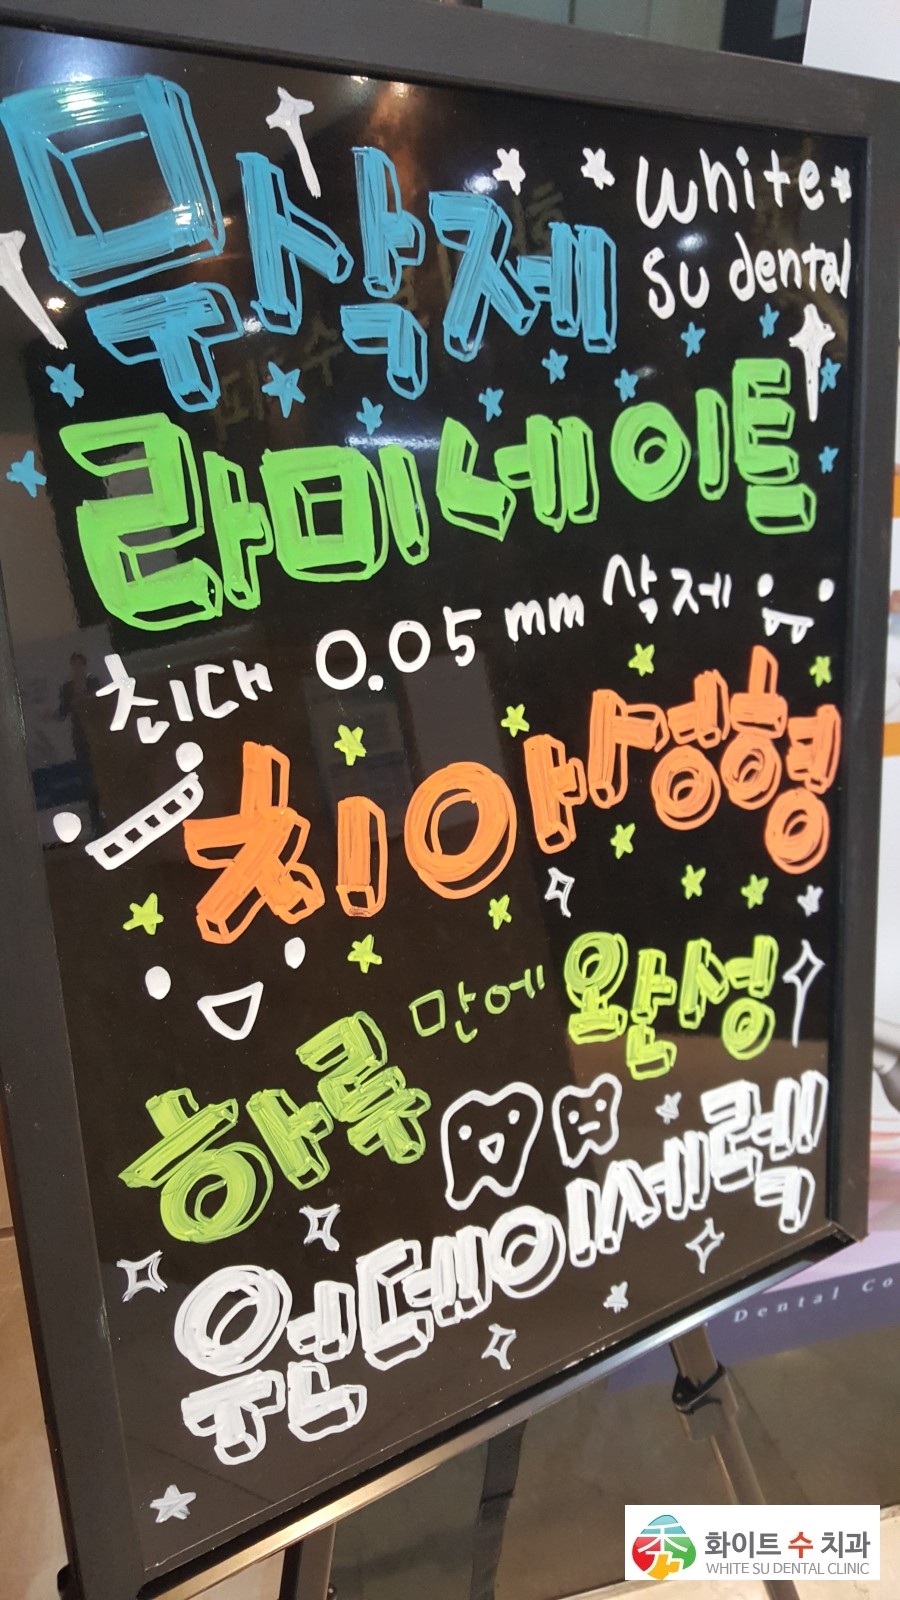 무삭제
white
su dental
라미네이트
최대 0.05mm 삭제
치아성형
하루만에 완성
원데이세렉
Dental Co
화이트 수 치과
WHITE SU DENTAL CLINIC